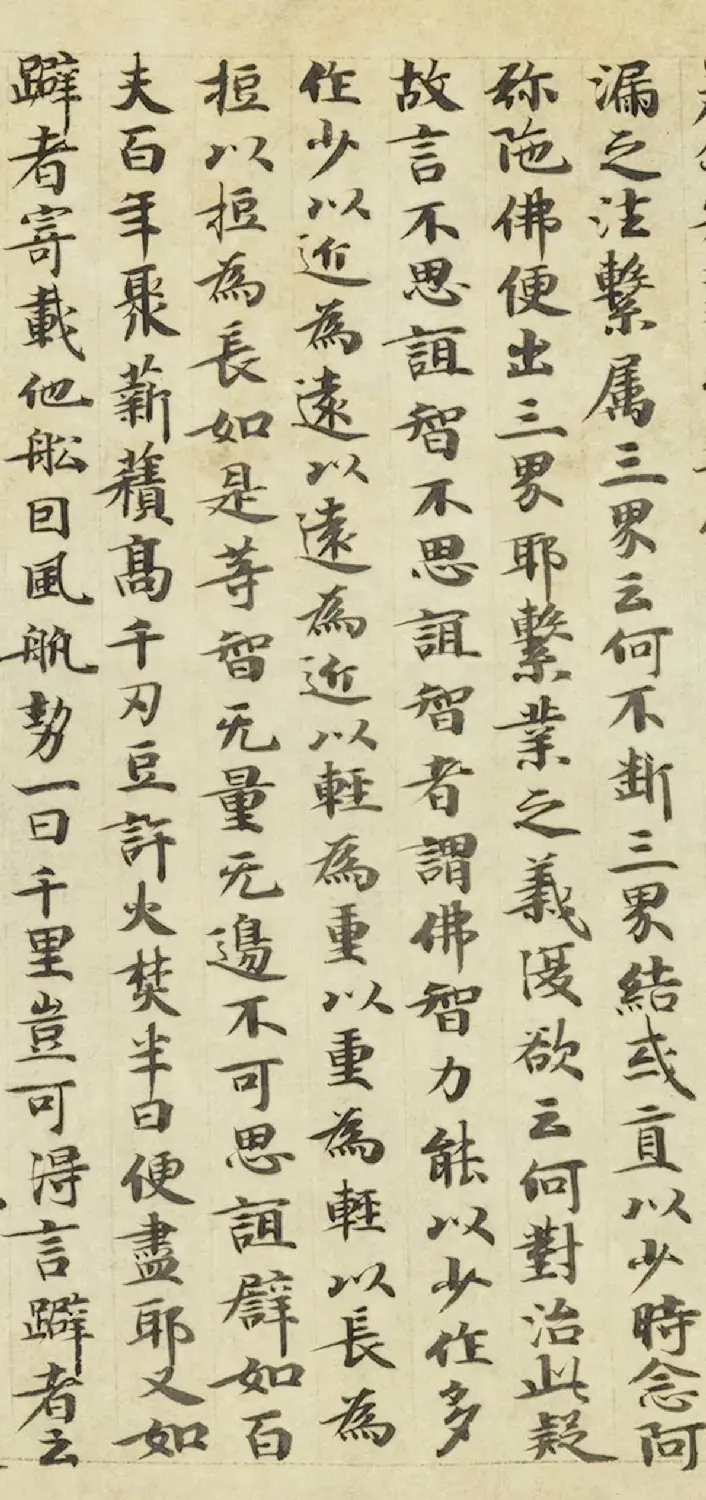 漏之法繫属三界云何不断三界結或直以少時念阿
弥陁佛便出三界耶繫業之義復欲云何對治此疑
故言不思誼智不思誼智者謂佛智力能以少作多
作少以近為遠以遠為近以輕為重以重為輕以長為
短以短為長如是等智无量无邊不可思誼譬如百
夫百年聚薪積高千刃豆許火焚半日便盡耶又如
躃者寄載他舩因風帆勢一日千里豈可得言躃者云